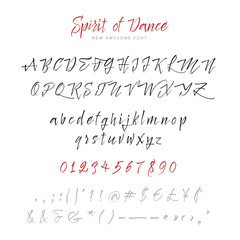 Spirit of Dance
NEW AWESOME FONT
ABCDEFGHIJKLMN
OPQRSTUVWXYZ
abcdefghijklmnop
qrstuvwxyz
01234567890
. , ; : ( " ! ? @ # $ € £ ¥
& & & * ( ) – —